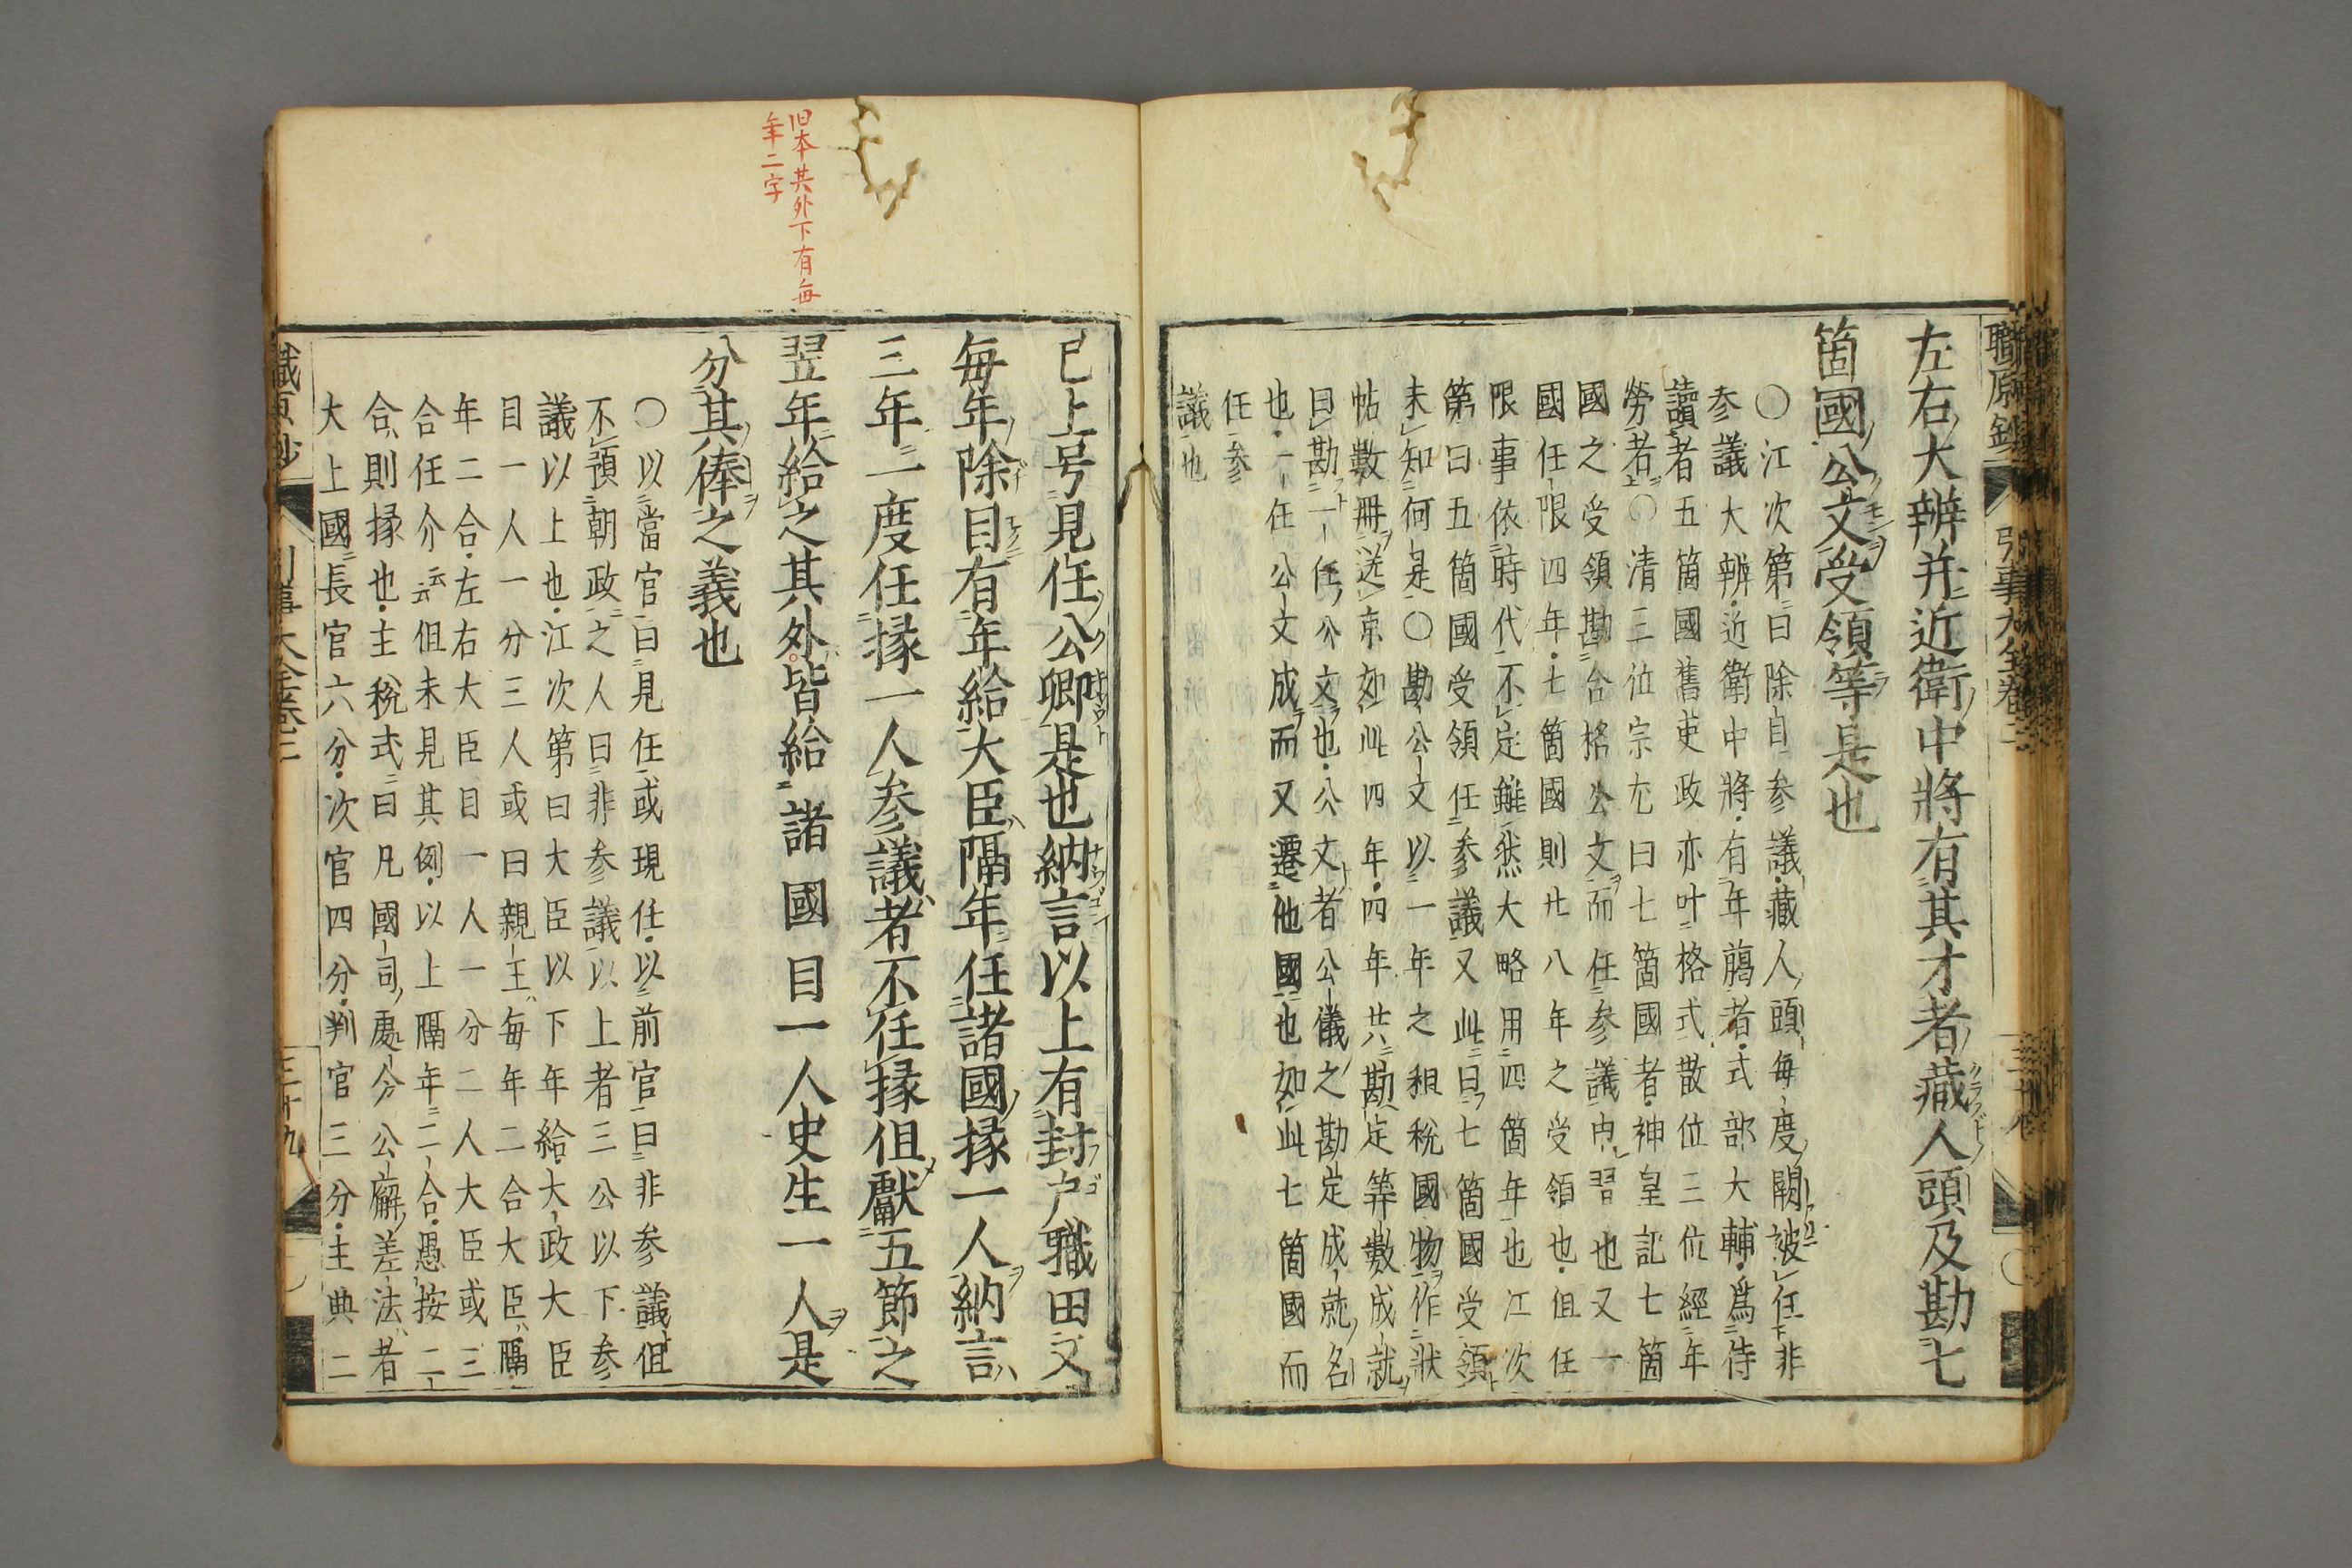 左右大辨并近衛中將有其才者藏人頭及勘七
箇國公文受領等是也
〇江次第曰除自参議藏人頭每度闕被任非
参議大辨近衛中將有年﨟者式部大輔爲侍
讀者五箇國舊吏政亦叶格式散位三位經年
勞者〇清三位宗尤曰七箇國者神皇記七箇
國之受領勘合格公文而任参議也又一
國任限四年七箇國則廿八年之受領也但任
限事依時代不定雖然大略用四箇年也江次
第曰五箇國受領任参議又此曰七箇國受領
未知何是〇勘公文以一年之租税國物作狀
帖數冊送京如此四年四年廿八勘定筭數成就
曰勘一任公文也公文者公儀之勘定成就名
也一任公文成而又遷他國也如此七箇國而
任参
議也
職原鈔
引事大全卷三
已上号見任公卿是也納言以上有封戸職田又
每年除目有年給大臣隔年任諸國掾一人納言
三年一度任掾一人参議者不任掾但獻五節之
翌年給之其外皆給諸國目一人史生一人是
分其俸之義也
〇以當官曰見任或現任以前官曰非参議但
不預朝政之人曰非参議以上者三公以下参
議以上也江次第曰大臣以下年給大政大臣
目一人一分三人或曰親王每年二合大臣隔
年二合左右大臣目一人一分二人大臣或三
合任介云云但未見其例以上隔年二合愚按二
合則掾也主税式曰凡國司處分公廨差法者
大上國長官六分次官四分判官三分主典二
職原鈔
引事大全卷三
三十九
旧本其外下有每
年二字